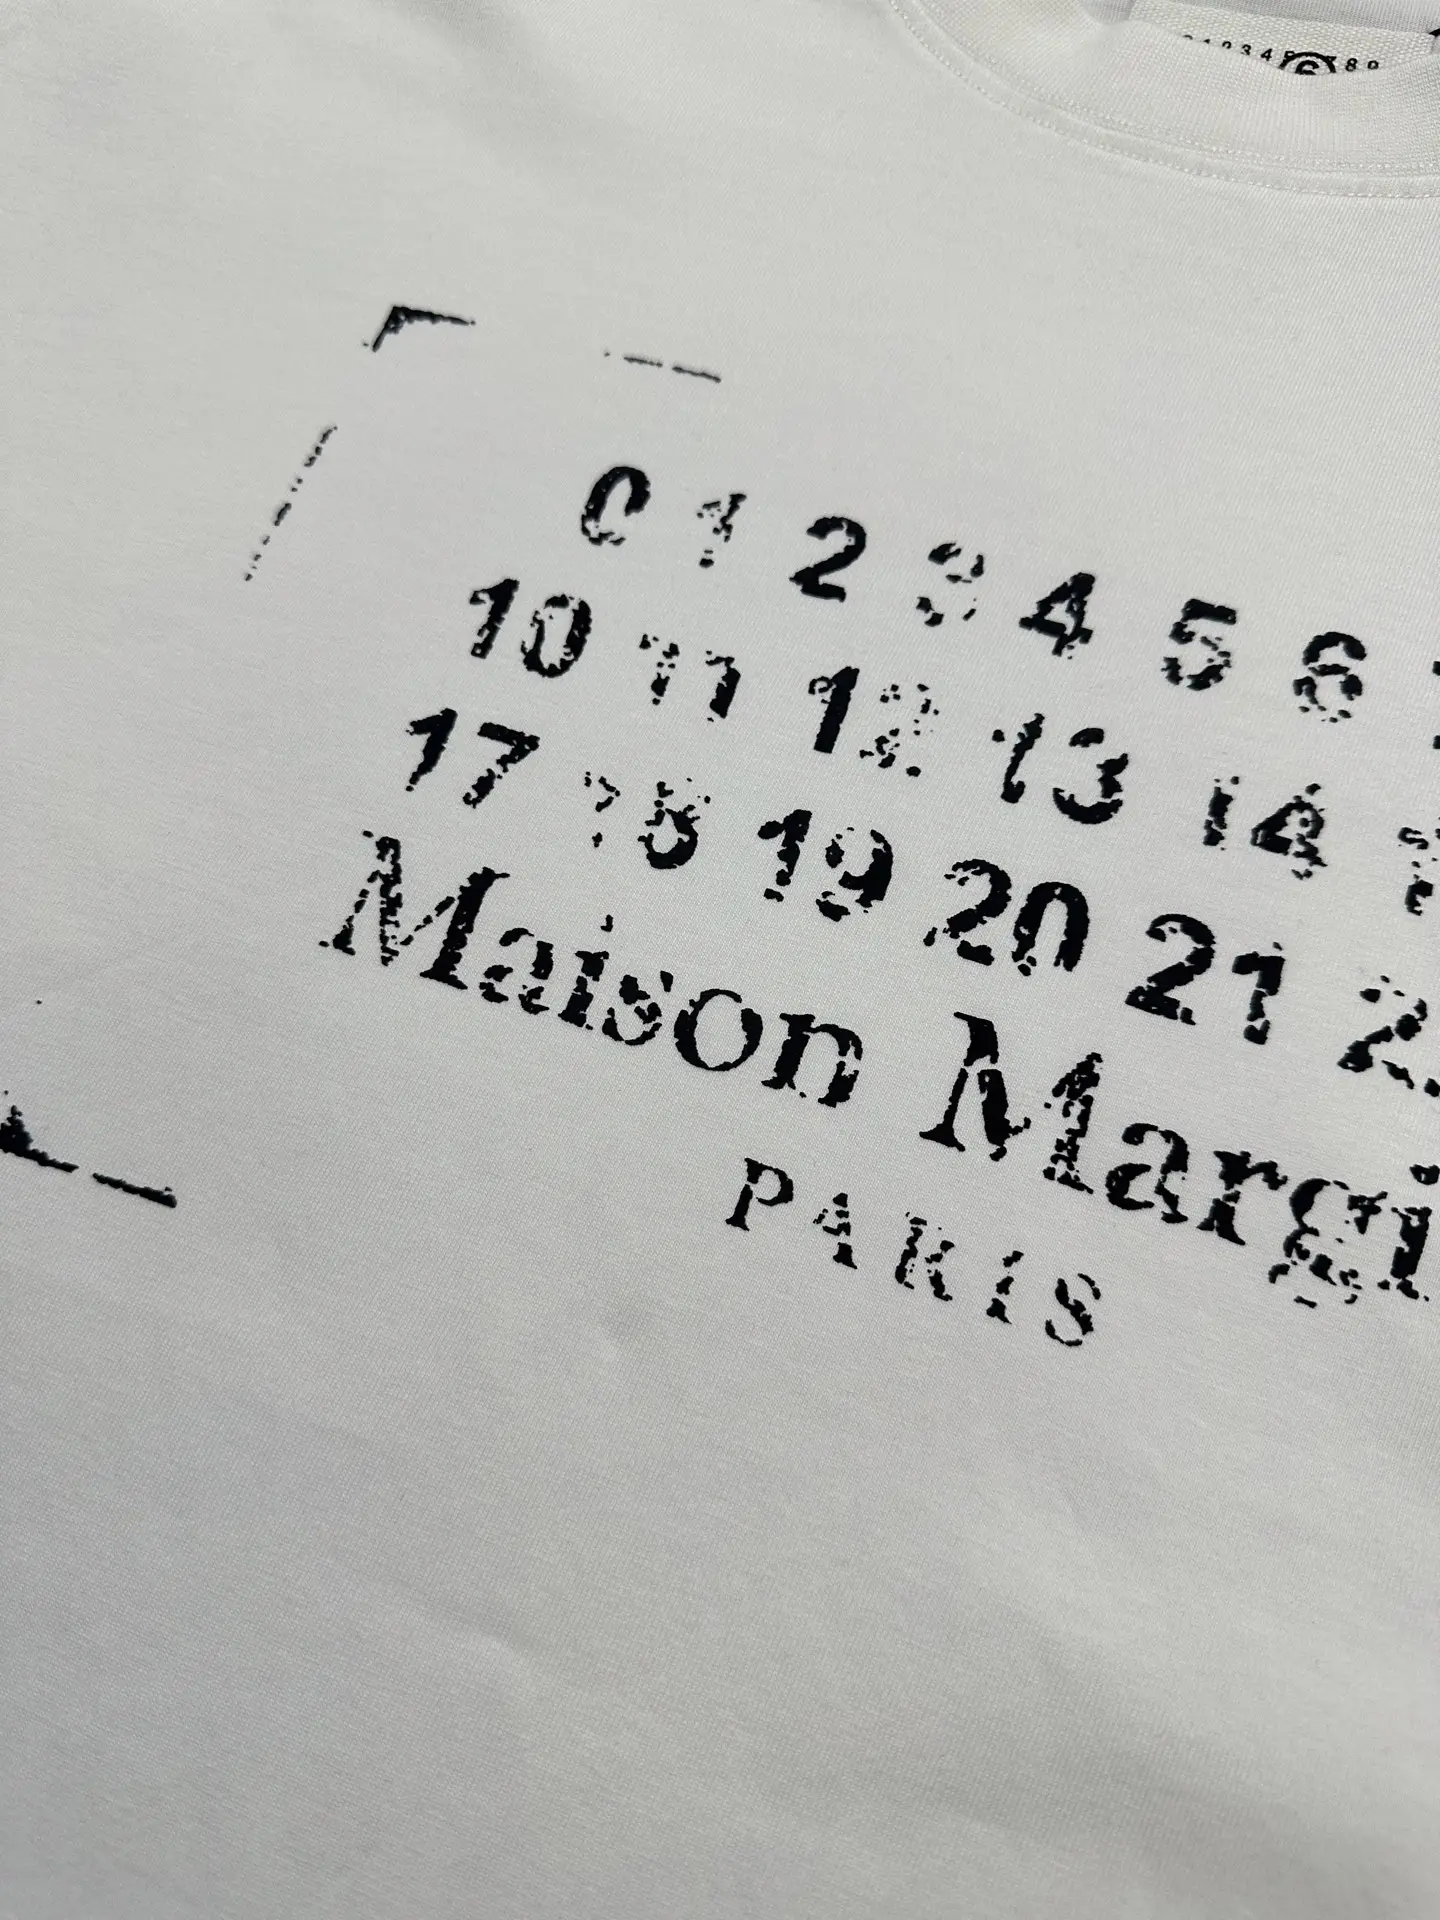 0 1 2 3 4 5 6
10 11 12 13 14
17 18 19 20 21
Maison Margi
PARIS